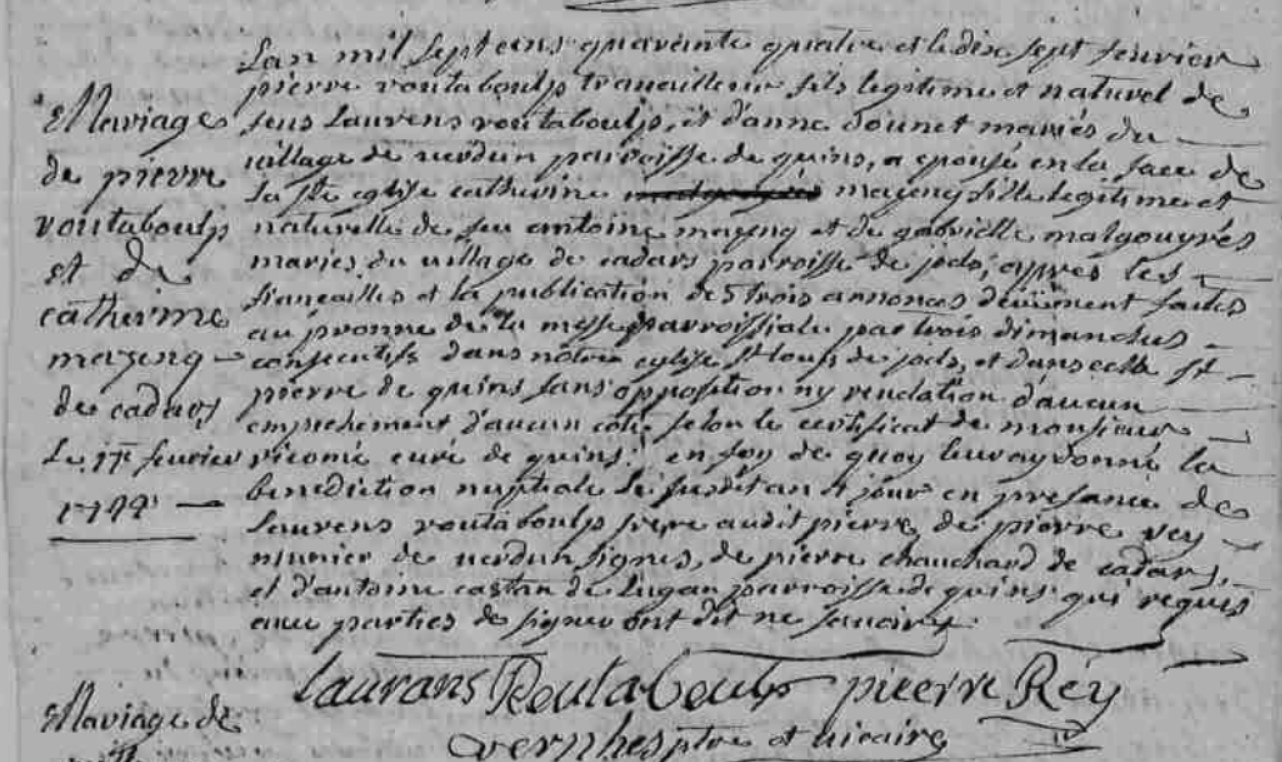 Lan mil sept cens quarente quatre et le dix sept fevrier
pierre routaboulp travailleur fils legitime et naturel de
feus Laurens routaboulp, et d'anne Dounet mariés du
village de verdun parroisse de quins, a epousé en la face de
la ste eglise catherine mazenq fille legitime et
naturelle de feu antoine mazenq et de gabrielle malgouyrés
mariés du village de cadars parroisse de jols, apprés les
fiancailles et la publication des trois annonces deüement faites
au pronne de la messe parroissiale par trois dimanches
consecutifs dans notre eglise st loup de jols, et dans celle st
pierre de quins sans opposition ny revelation d'aucun
empechement d'aucun coté selon le certificat de monsieur
vicomé curé de quins: en foy de quoy leur ay donné la
benediction nuptiale le susdit an et jour en presance de
Laurens routaboulp frere audit pierre, de pierre rey
munier de verdun signes, de pierre chauchard de cadars,
et d'antoine castan de Lugan parroisse de quins qui requis
avec parties de signer ont dit ne scavoir
Mariage
de pierre
routaboulp
et de
catherine
mazenq
de cadars
Le 17e fevrier
1744
Laurans Routaboulp pieerre Rey
vernhes ptre et vicaire
Mariage de